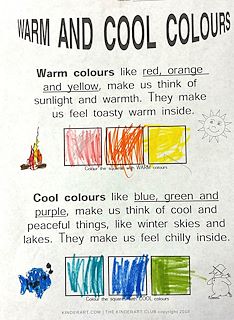 WARM AND COOL COLOURS
Warm colours like red, orange
and yellow, make us think of
sunlight and warmth. They make
us feel toasty warm inside.
Colour the squares with WARM colours
Cool colours like blue, green and
purple, make us think of cool and
peaceful things, like winter skies and
lakes. They make us feel chilly inside.
Colour the squares with COOL colours
KINDERART.COM — THE KINDERART CLUB copyright 2018